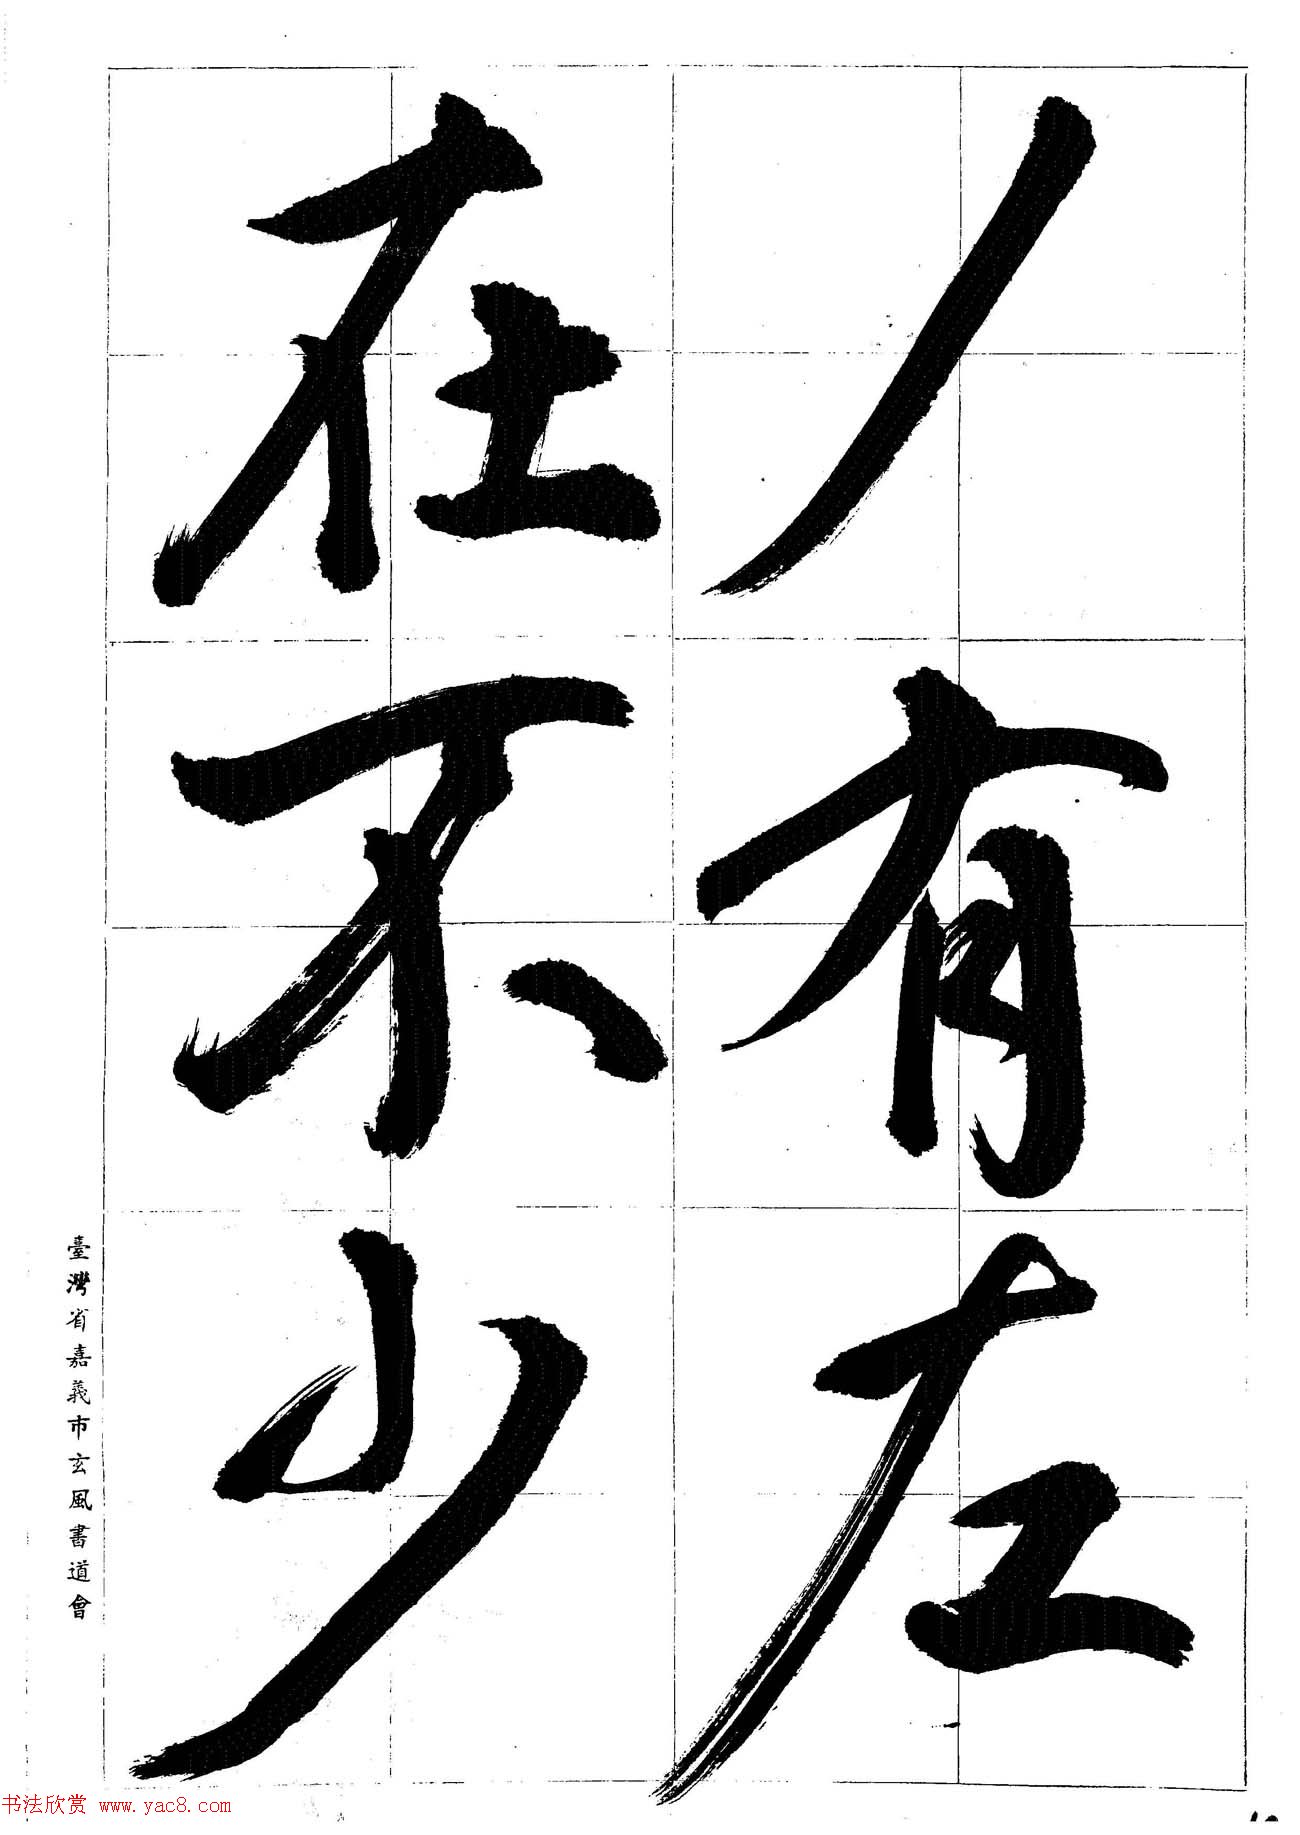 丿有左
在不少
臺灣省嘉義市玄風書道會
书法欣赏 www.yac8.com